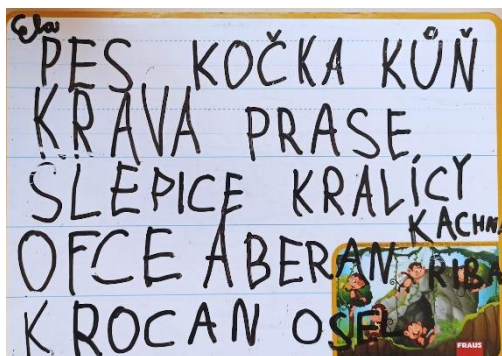 Ela
PES KOČKA KŮŇ
KRAVA PRASE
SLEPICE KRALÍCY
KACHNA
OFCE A BERAN RIB
KROCAN OSEL
FRAUS